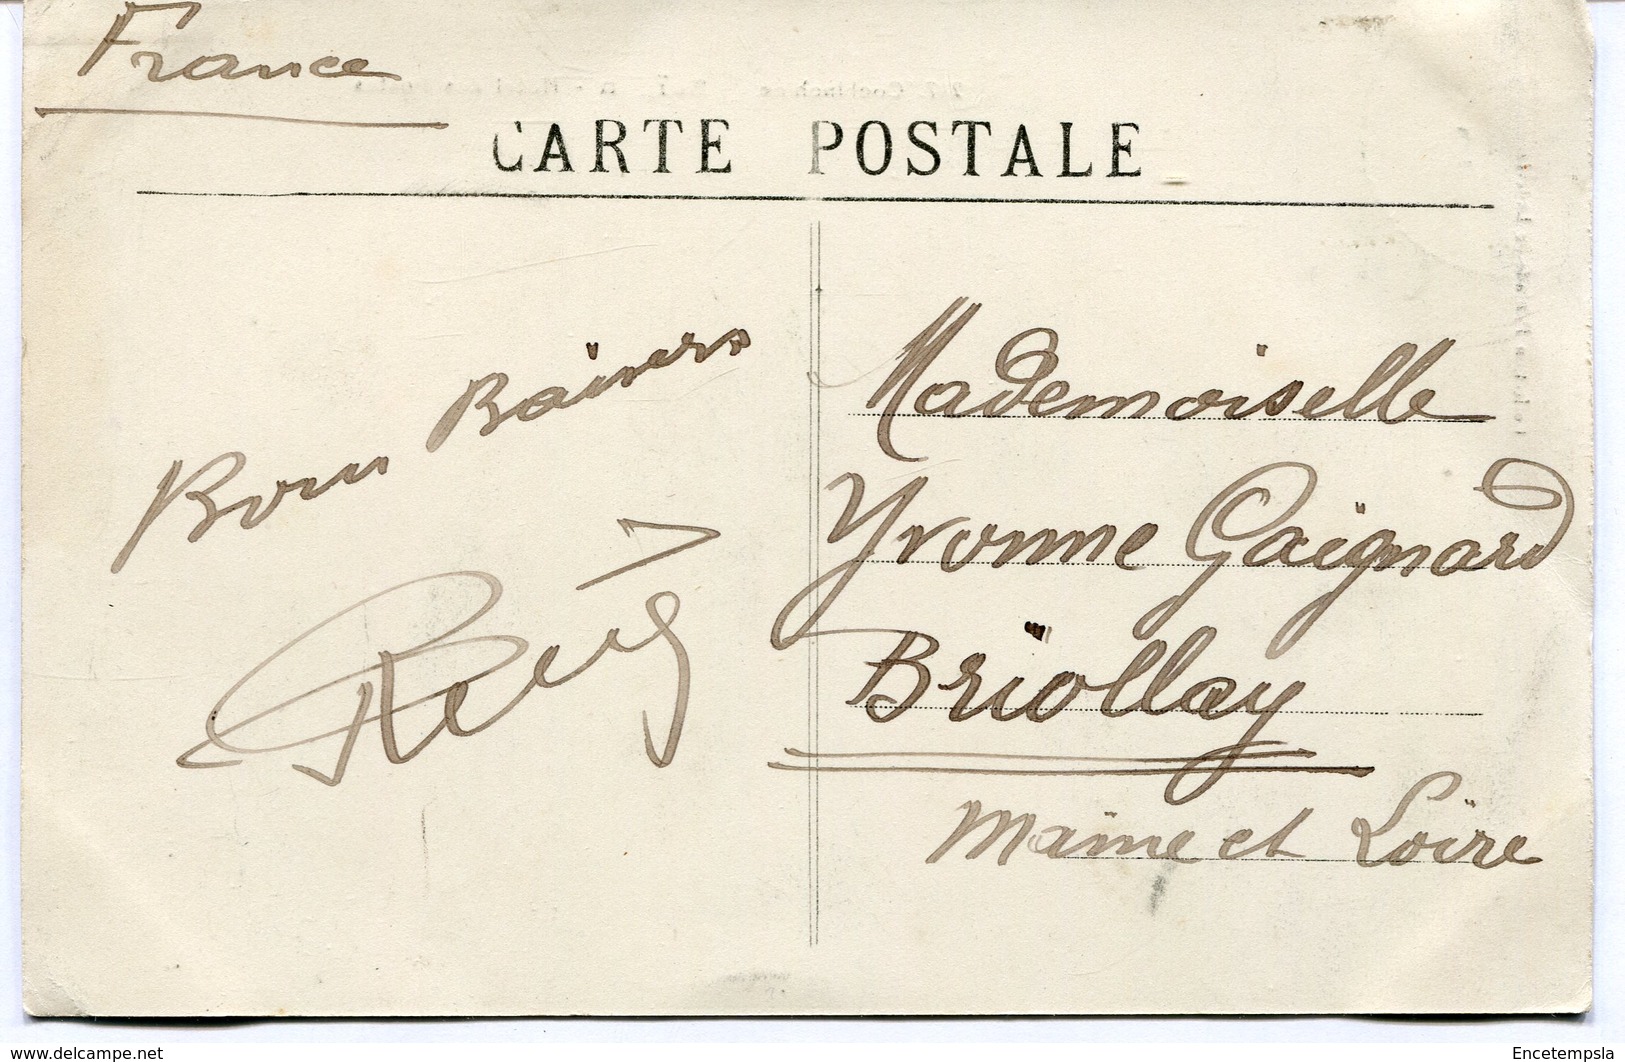 France
CARTE POSTALE
Bons Baisers
Mademoiselle
Yvonne Gaignard
Briollay
Maine et Loire
www.delcampe.net
Encetempsla